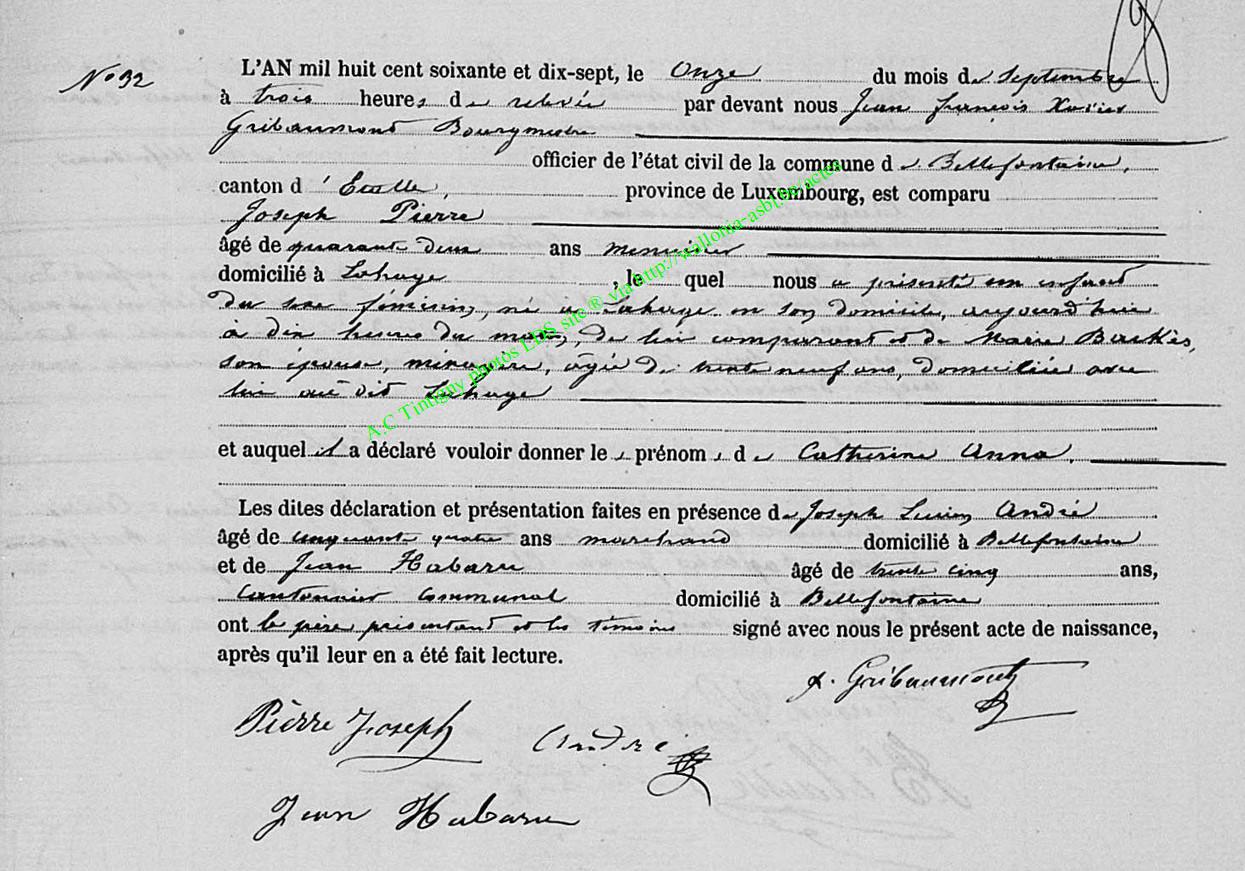 N° 92
L'AN mil huit cent soixante et dix-sept, le Onze du mois de septembre
à trois heures de relevée par devant nous Jean françois Xavier
Gribaumont Bourgmestre
officier de l'état civil de la commune de Bellefontaine,
canton d'Etalle, province de Luxembourg, est comparu
Joseph Pierre
âgé de quarante deux ans menuisier
domicilié à Lahage, le quel nous a présenté un enfant
du sexe féminin, né à Lahage en son domicile, aujourd'hui
à dix heures du matin, de lui comparant et de Marie
son épouse, ménagère, âgée de trente neuf ans, domiciliée avec
lui au dit Lahage
et auquel il a déclaré vouloir donner les prénoms de Catherine Anna,
Les dites déclaration et présentation faites en présence de Joseph Lucien André
âgé de cinquante quatre ans marchand domicilié à Bellefontaine
et de Jean Habaru âgé de trente cinq ans,
Cantonnier communal domicilié à Bellefontaine
ont le père présentant et les témoins signé avec nous le présent acte de naissance,
après qu'il leur en a été fait lecture.
X. Gribaumont
Pièrre Joseph André
Jean Habaru
A.C Tintigny photos LDS site ® via http://wallonia-asbl.be/actes